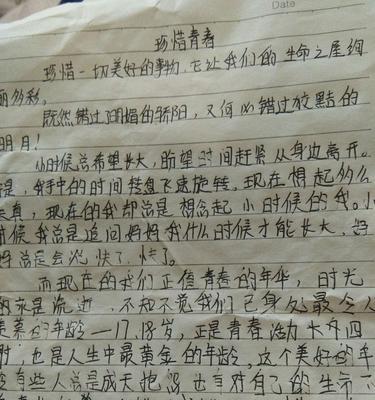 Date
珍惜青春
珍惜一切美好的事物,它让我们的生命之屋绚
丽多彩。
既然错过明媚的骄阳,又何必错过皎黠的
明月!
小时候总希望长大,盼望时间赶紧从身边离开。
是,我手中的时间转盘飞速旋转。现在想起的么
真,现在的我却总是想念起小时候的我。小
时候我总是追问妈妈我什么时候才能长大,妈
妈总是会说,快了,快了。
而现在的我们正值青春的年华,时光
的永是流逝,不知不觉我们已身处最令人
羡慕的年龄——17、18岁,正是青春活力大开四
射,也是人生中最黄金的年龄,这个美好的年
有些人总是成天抱怨 对自己的生命